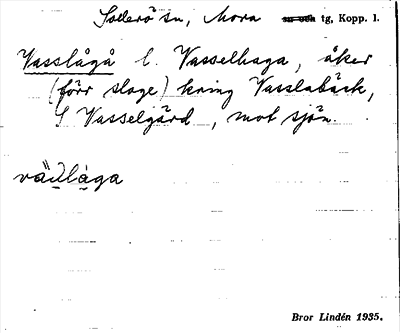 Sollerö sn, Mora sn och tg, Kopp. l.
Vasslågå l. Vasselhaga, åker
(förr sloge) kring Vasslabäck,
S Vasselgård, mot sjön.
Bror Lindén 1935.